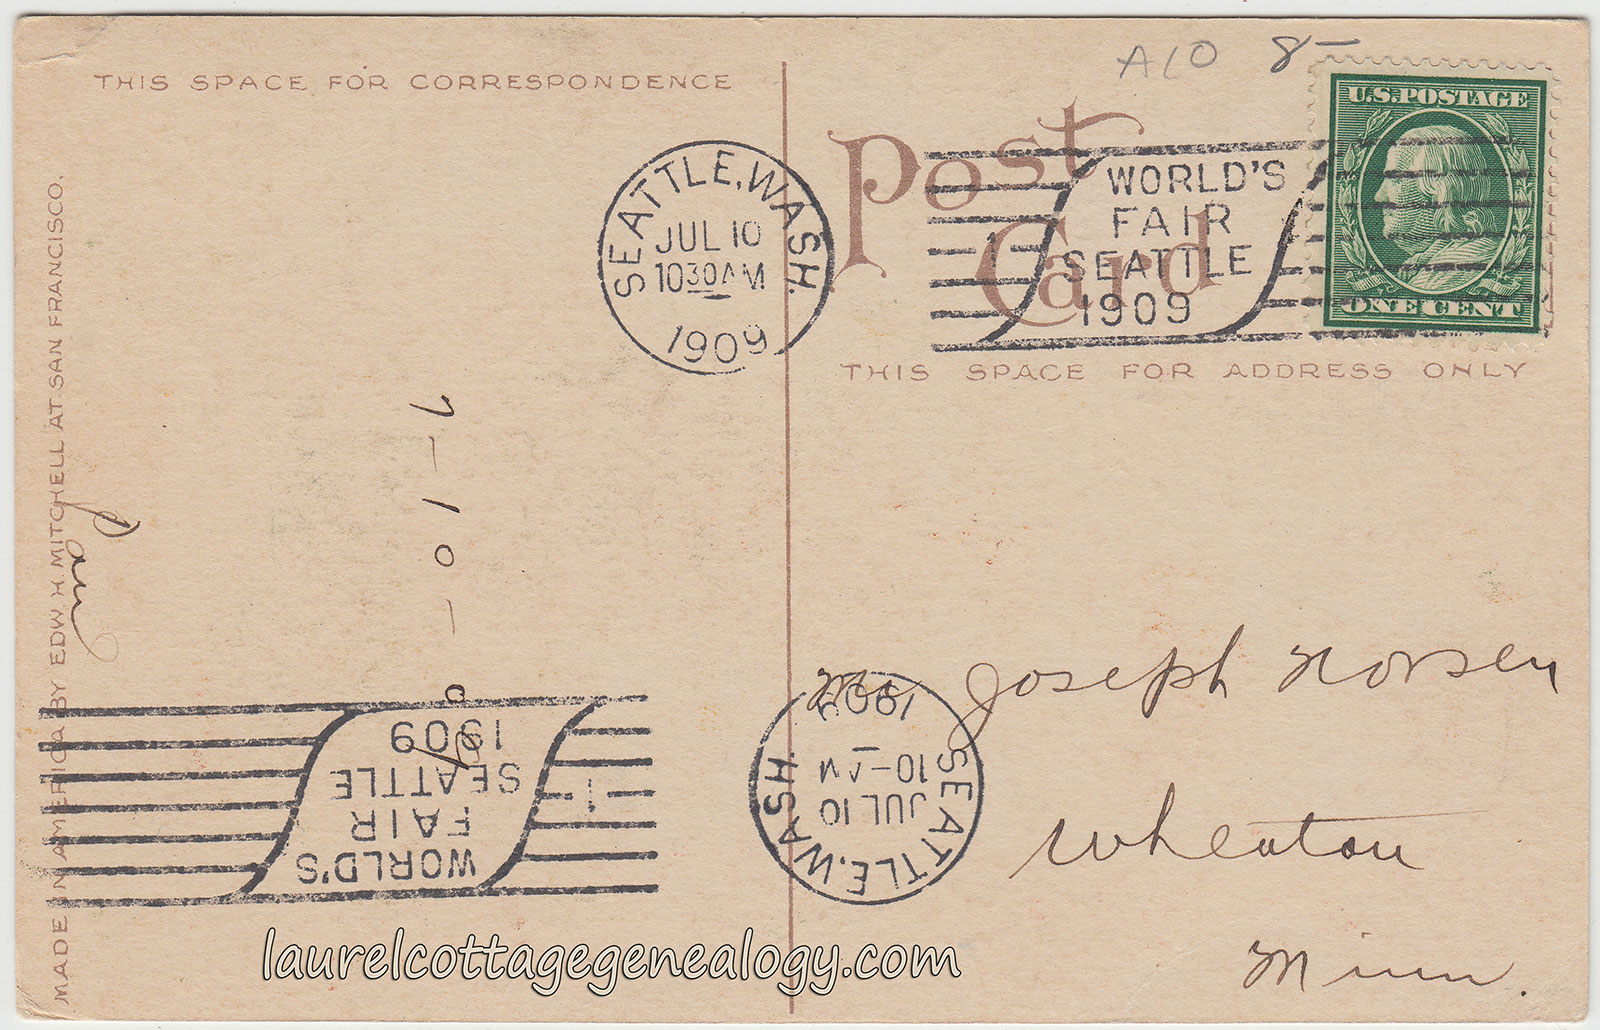 THIS SPACE FOR CORRESPONDENCE
A10 8-
Post
Card
U.S. POSTAGE
ONE CENT
SEATTLE, WASH.
JUL 10
1030 AM
1909
WORLD'S
FAIR
SEATTLE
1909
1
THIS SPACE FOR ADDRESS ONLY
MADE IN AMERICA BY EDW H. MITCHELL AT SAN FRANCISCO.
7-10-09
Joseph Norsen
Wheaton
Minn.
WORLD'S
FAIR
SEATTLE
1909
1
SEATTLE, WASH.
JUL 10
10-AM
1909
laurelcottagegenealogy.com